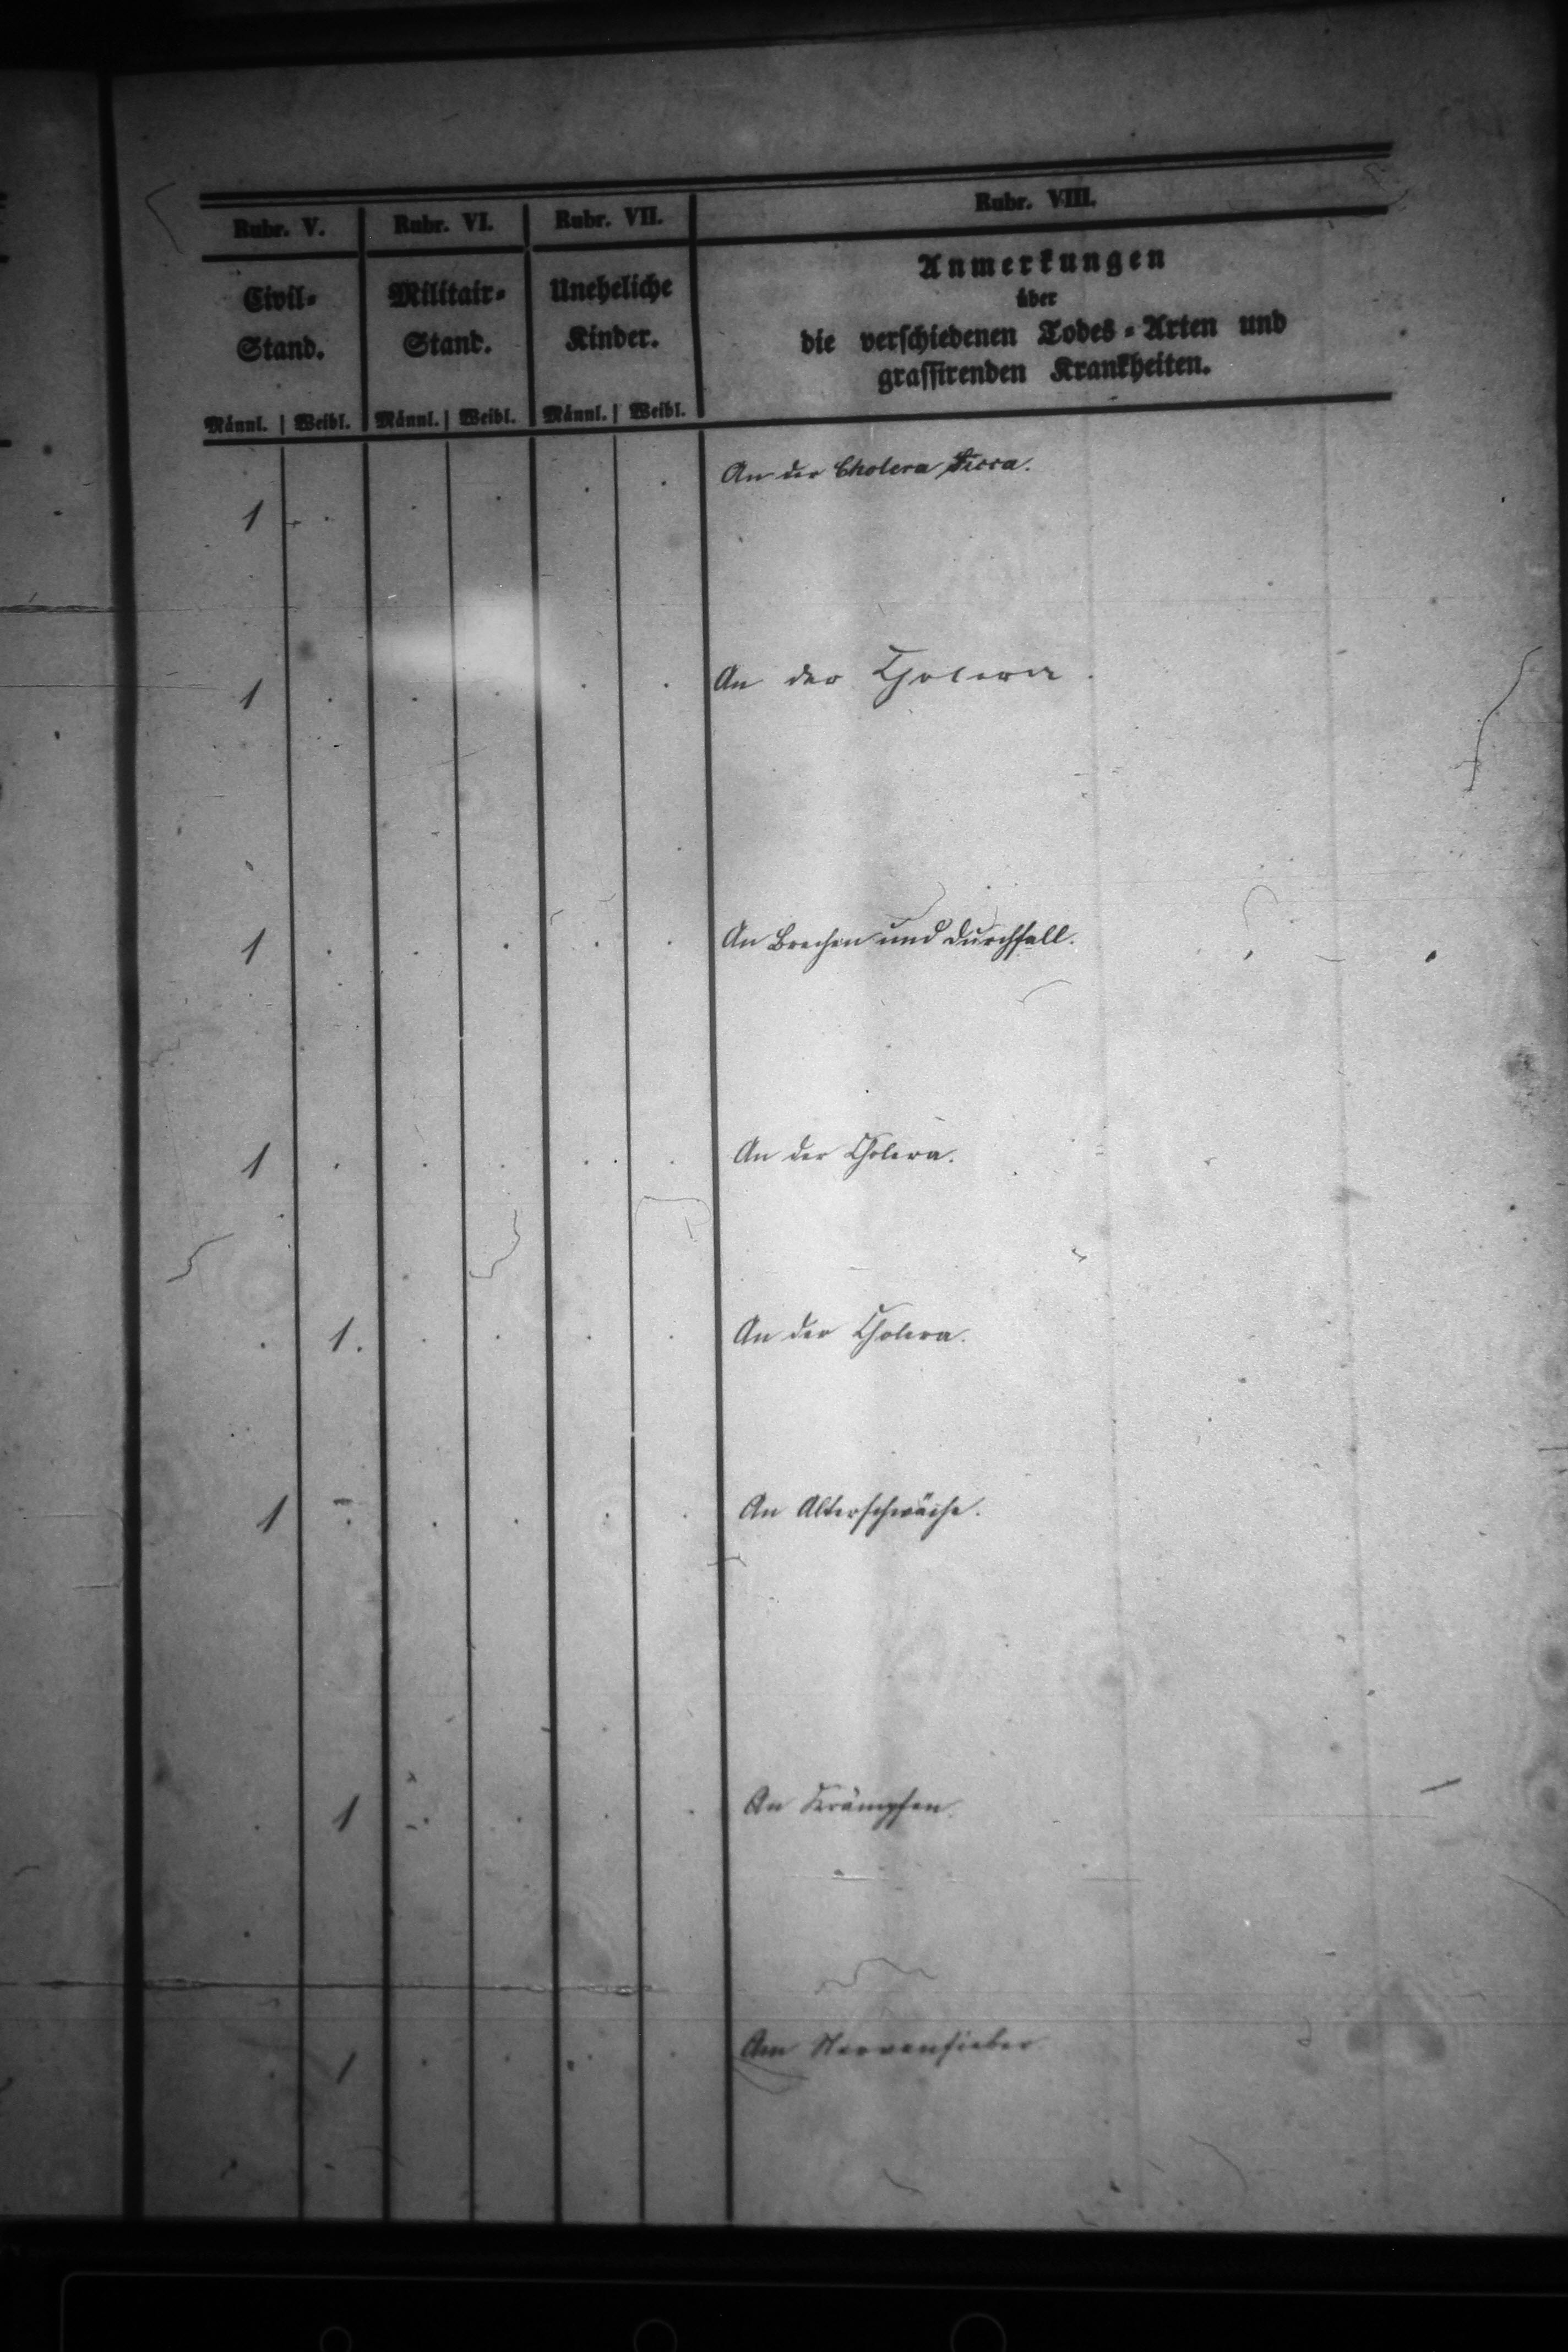 Rubr. V. Rubr. VI. Rubr. VII. Rubr. VIII.
Civil- Militair- Uneheliche Anmerkungen
über
Stand. Stand. Kinder. die verschiedenen Todes-Arten und
grassirenden Krankheiten.
Männl. Weibl. Männl. Weibl. Männl. Weibl.
1 . . . . . An der Cholera Sicca.
1 . . . . . An der Cholera.
1 . . . . . An Brechen und Durchfall.
1 . . . . . An der Cholera.
. 1. . . . . An der Cholera.
1 . . . . . An Alterschwäche.
. 1 . . . . An Krämpfen.
1 . . . . Am Nervenfieber